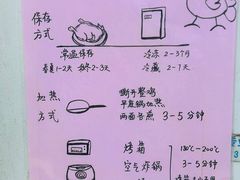 保存
方式
常温保存 冷冻 2-3个月
春夏1-2天 秋冬2-3天 冷藏 2-7天
加热
方式
撕开整鸡
平底锅加热
两面各煎 3-5分钟
烤箱 180℃-200℃
空气炸锅 3-5分钟